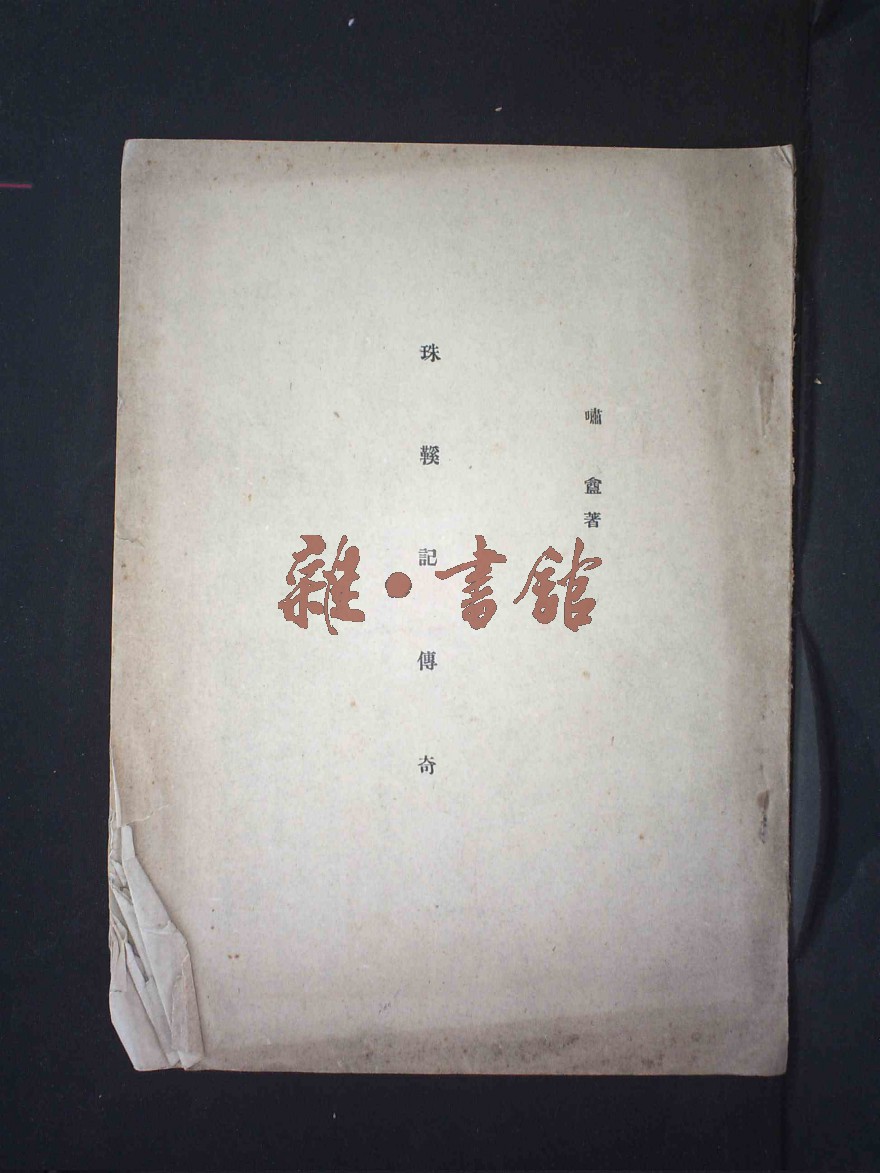 嘯盦著
珠鞵記傳奇
雜·書館